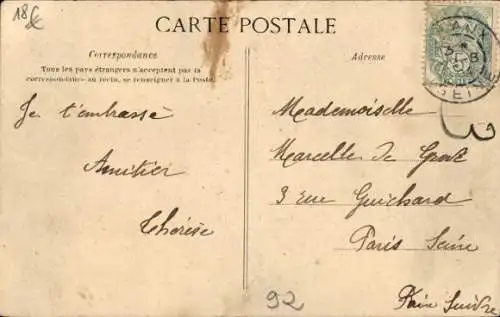 18€
CARTE POSTALE
Correspondance
Tous les pays étrangers n'acceptent pas la
correspondance au recto, se renseigner à la Poste.
Adresse
Je t'embrasse
Amitier
Thérèse
Mademoiselle
Marcelle de
3 rue Guichard
Paris Seine
Faire Suivre
92